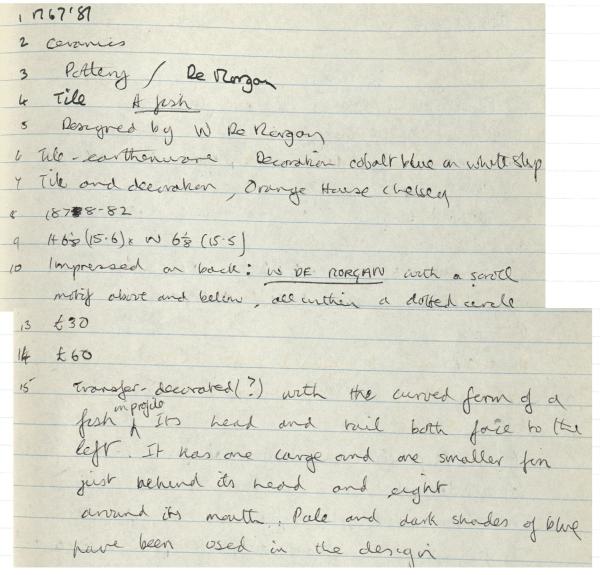 1 1767'87
2 Ceramics
3 Pottery / De Morgan
4 Tile A fish
5 Designed by W De Morgan
6 Tile - earthenware, Decoration cobalt blue on white slip
7 Tile and decoration, Orange House Chelsea
8 1878-82
9 H 6⅛ (15.6) x W 6⅛ (15.5)
10 Impressed on back: W DE MORGAN with a scroll
motif above and below, all within a dotted circle
13 £30
14 £60
15 Transfer-decorated(?) with the curved form of a
fish in profile. Its head and tail both face to the
left. It has one large and one smaller fin
just behind its head and eight
around its mouth. Pale and dark shades of blue
have been used in the design